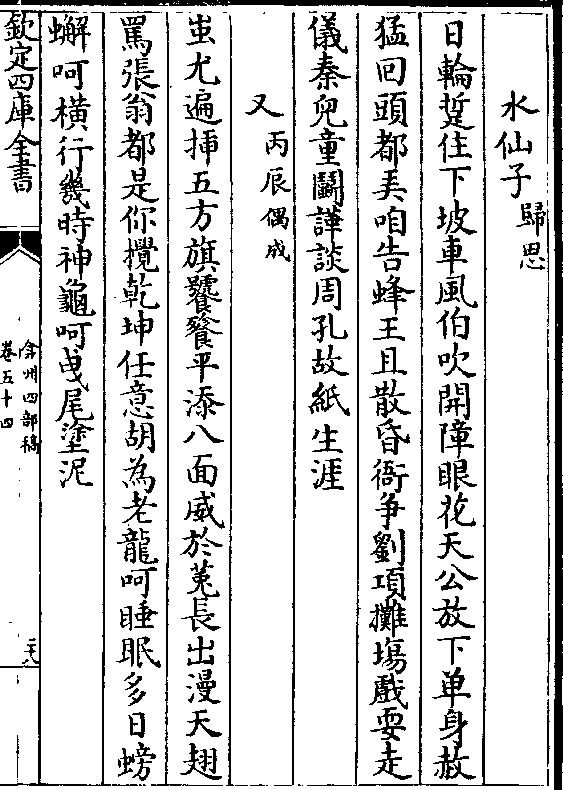 水仙子歸思
日輪踅住下坡車風伯吹開障眼花天公放下单身赦
猛囘頭都丟咱告蜂王且散昏衙争劉項攤塲戲耍走
儀秦兒童鬭譁談周孔故紙生涯
又丙辰偶成
蚩尤遍揷五方旗饕餮平添八面威於菟長出漫天翅
罵張翁都是你攪乾坤任意胡為老龍呵睡眠多日螃
蠏呵横行幾時神龜呵曵尾塗泥
欽定四庫全書
弇州四部稿
卷五十四